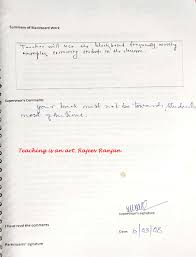 Summary of Blackboard Work
Teacher will use the blackboard frequently, writing
examples, involving students in the classroom.
Supervisor's Comments
Your back must not be towards students
most of the time.
Teaching is an art, Rajeev Ranjan
Supervisor's signature
I have read the comments
Date: 6/03/08
Participants' signature